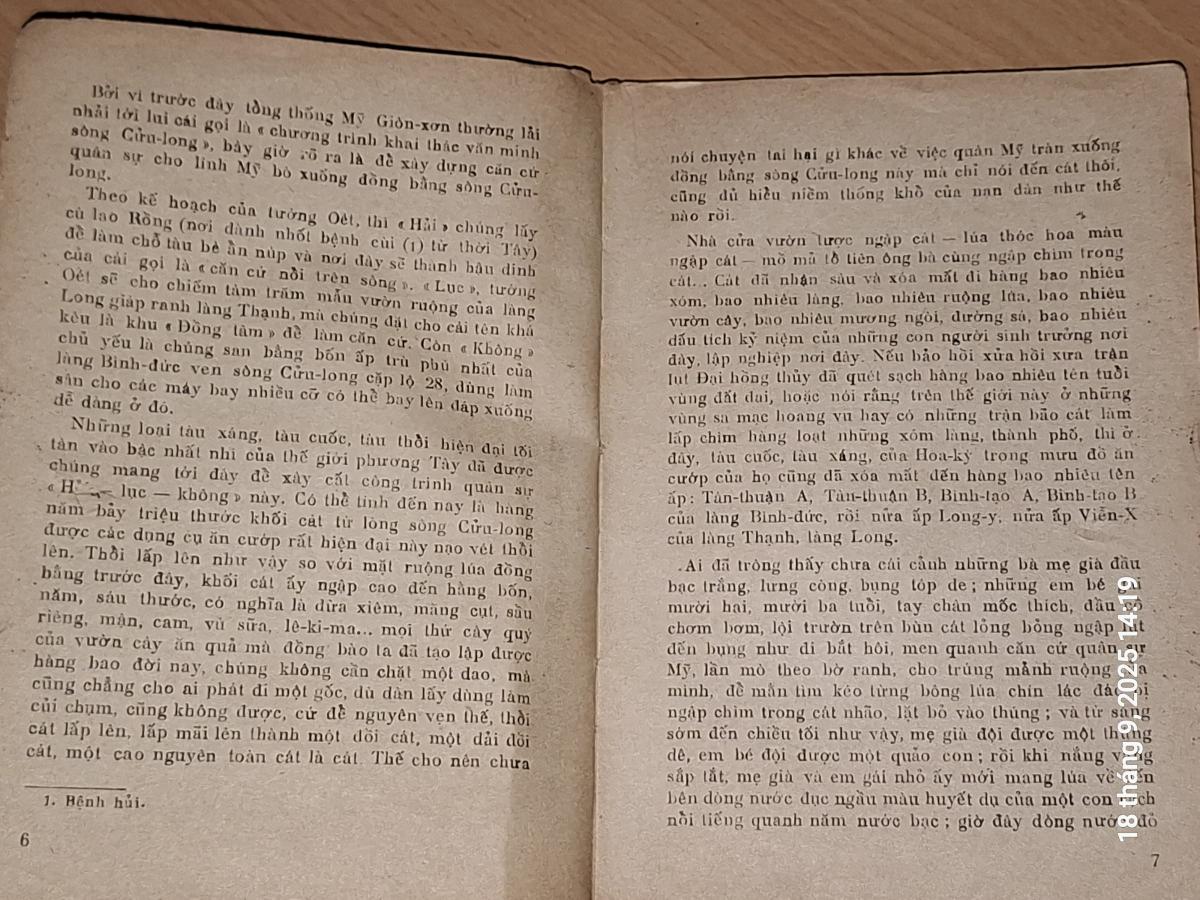 Bởi vì trước đây tổng thống Mỹ Giôn-xơn thường lải
nhải tới lui cái gọi là « chương trình khai thác văn minh
sông Cửu-long », bây giờ rõ ra là để xây dựng căn cứ
quân sự cho lính Mỹ bò xuống đồng bằng sông Cửu-
long.
Theo kế hoạch của tướng Oét, thì « Hải » chúng lấy
cù lao Rồng (nơi dành nhốt bệnh cùi (1) từ thời Tây)
để làm chỗ tàu bè ẩn núp và nơi đây sẽ thành hậu dinh
của cái gọi là « căn cứ nổi trên sông ». « Lục », tướng
Oét sẽ cho chiếm tám trăm mẫu vườn ruộng của làng
Long giáp ranh làng Thạnh, mà chúng đặt cho cái tên khá
kêu là khu « Đồng tâm » để làm căn cứ. Còn « Không »
chủ yếu là chúng san bằng bốn ấp trù phú nhất của
làng Bình-đức ven sông Cửu-long cặp lộ 28, dùng làm
sân cho các máy bay nhiều cỡ có thể bay lên đáp xuống
dễ dàng ở đó.
Những loại tàu xáng, tàu cuốc, tàu thổi hiện đại tối
tân vào bậc nhất nhì của thế giới phương Tây đã được
chúng mang tới đây để xây cất công trình quân sự
lục — không » này. Có thể tính đến nay là hàng
năm bảy triệu thước khối cát từ lòng sông Cửu-long
được các dụng cụ ăn cướp rất hiện đại này nạo vét thổi
lên. Thổi lấp lên như vậy so với mặt ruộng lúa đồng
bằng trước đây, khối cát ấy ngập cao đến hằng bốn,
năm, sáu thước, có nghĩa là dừa xiêm, măng cụt, sầu
riêng, mận, cam, vú sữa, lê-ki-ma... mọi thứ cây quý
của vườn cây ăn quả mà đồng bào ta đã tạo lập được
hàng bao đời nay, chúng không cần chặt một dao, mà
cũng chẳng cho ai phát đi một gốc, dù dân lấy dùng làm
củi chụm, cũng không được, cứ để nguyên vẹn thế, thổi
cát lấp lên, lấp mãi lên thành một dồi cát, một dải đồi
cát, một cao nguyên toàn cát là cát. Thế cho nên chưa
1. Bệnh hủi.
6
nói chuyện tai hại gì khác về việc quân Mỹ tràn xuống
đồng bằng sông Cửu-long này mà chỉ nói đến cát thôi,
cũng đủ hiểu niềm thống khổ của nạn dân như thế
nào rồi.
Nhà cửa vườn tược ngập cát — lúa thóc hoa màu
ngập cát — mồ mả tổ tiên ông bà cũng ngập chìm trong
cát... Cát đã nhận sâu và xóa mất đi hàng bao nhiêu
xóm, bao nhiêu làng, bao nhiêu ruộng lúa, bao nhiêu
vườn cây, bao nhiêu mương ngòi, đường sá, bao nhiêu
dấu tích kỷ niệm của những con người sinh trưởng nơi
đây, lập nghiệp nơi đây. Nếu bảo hồi xửa hồi xưa trận
lụt Đại hồng thủy đã quét sạch hàng bao nhiêu tên tuổi
vùng đất đai, hoặc nói rằng trên thế giới này ở những
vùng sa mạc hoang vu hay có những trận bão cát làm
lấp chìm hàng loạt những xóm làng, thành phố, thì ở
đây, tàu cuốc, tàu xáng, của Hoa-kỳ trong mưu đồ ăn
cướp của họ cũng đã xóa mất đến hàng bao nhiêu tên
ấp: Tân-thuận A, Tân-thuận B, Bình-tạo A, Bình-tạo B
của làng Bình-đức, rồi nửa ấp Long-y, nửa ấp Viễn-X
của làng Thạnh, làng Long.
Ai đã trông thấy chưa cái cảnh những bà mẹ già đầu
bạc trắng, lưng còng, bụng tóp de ; những em bé
mười hai, mười ba tuổi, tay chân mốc thích, đầu cổ
chơm bơm, lội trườn trên bùn cát lỏng bỏng ngập lút
đến bụng như đi bắt hôi, men quanh căn cứ quân sự
Mỹ, lần mò theo bờ ranh, cho trúng mảnh ruộng
mình, để mần tìm kéo từng bông lúa chín lác đác bị
ngập chìm trong cát nhão, lặt bỏ vào thúng ; và từ sáng
sớm đến chiều tối như vậy, mẹ già đội được một thúng
dê, em bé đội được một quảo con ; rồi khi nắng vàng
sắp tắt, mẹ già và em gái nhỏ ấy mới mang lúa về đến
bên dòng nước đục ngầu màu huyết dụ của một con rạch
nổi tiếng quanh năm nước bạc ; giờ đây dòng nước đỏ
7
18 tháng 9, 2025 14:19